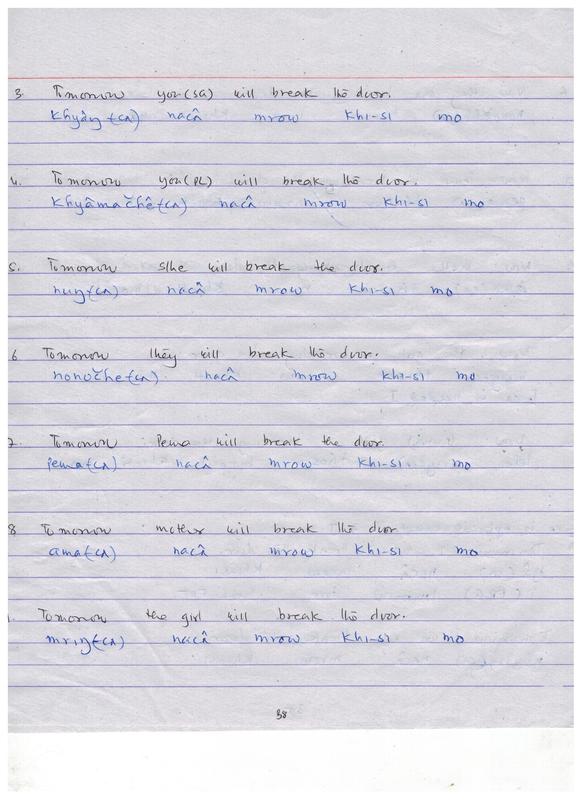 3. Tomorrow you(SG) will break the door.
khyâŋ+(CA) nacâ mrow khi-si mo
4. Tomorrow you(PL) will break the door.
khyâmačhê+(CA) nacâ mrow khi-si mo
5. Tomorrow s/he will break the door.
huŋ+(CA) nacâ mrow khi-si mo
6 Tomorrow they will break the door.
nacâ mrow khi-si mo
7. Tomorrow Pema will break the door.
pema+(CA) nacâ mrow khi-si mo
8 Tomorrow mother will break the door
ama+(CA) nacâ mrow khi-si mo
Tomorrow the girl will break the door.
mriŋ+(CA) nacâ mrow khi-si mo
38